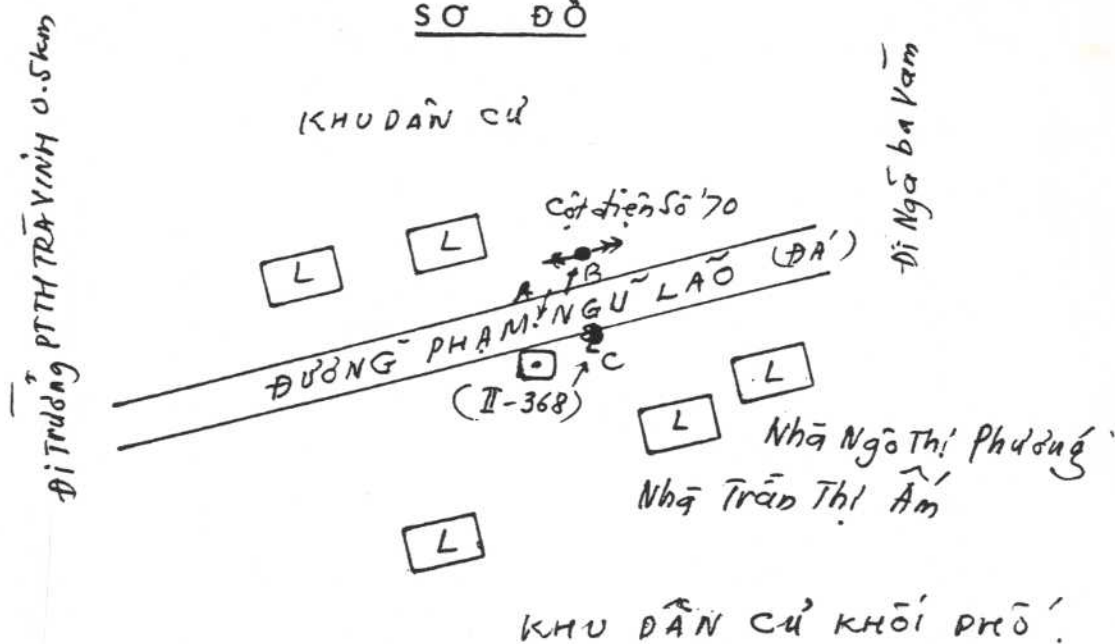 SƠ ĐỒ
Đi Trường PTTH TRÀ VINH 0.5km
KHU DÂN CƯ
Đi Ngã ba Vàm
Cột điện Số 70
L
L
A
B
ĐƯỜNG PHẠM NGŨ LÃO (ĐÁ)
C
(II-368)
L
L
Nhà Ngô Thị Phương
Nhà Trần Thị Ấm
L
KHU DÂN CƯ KHỐI PHỐ.